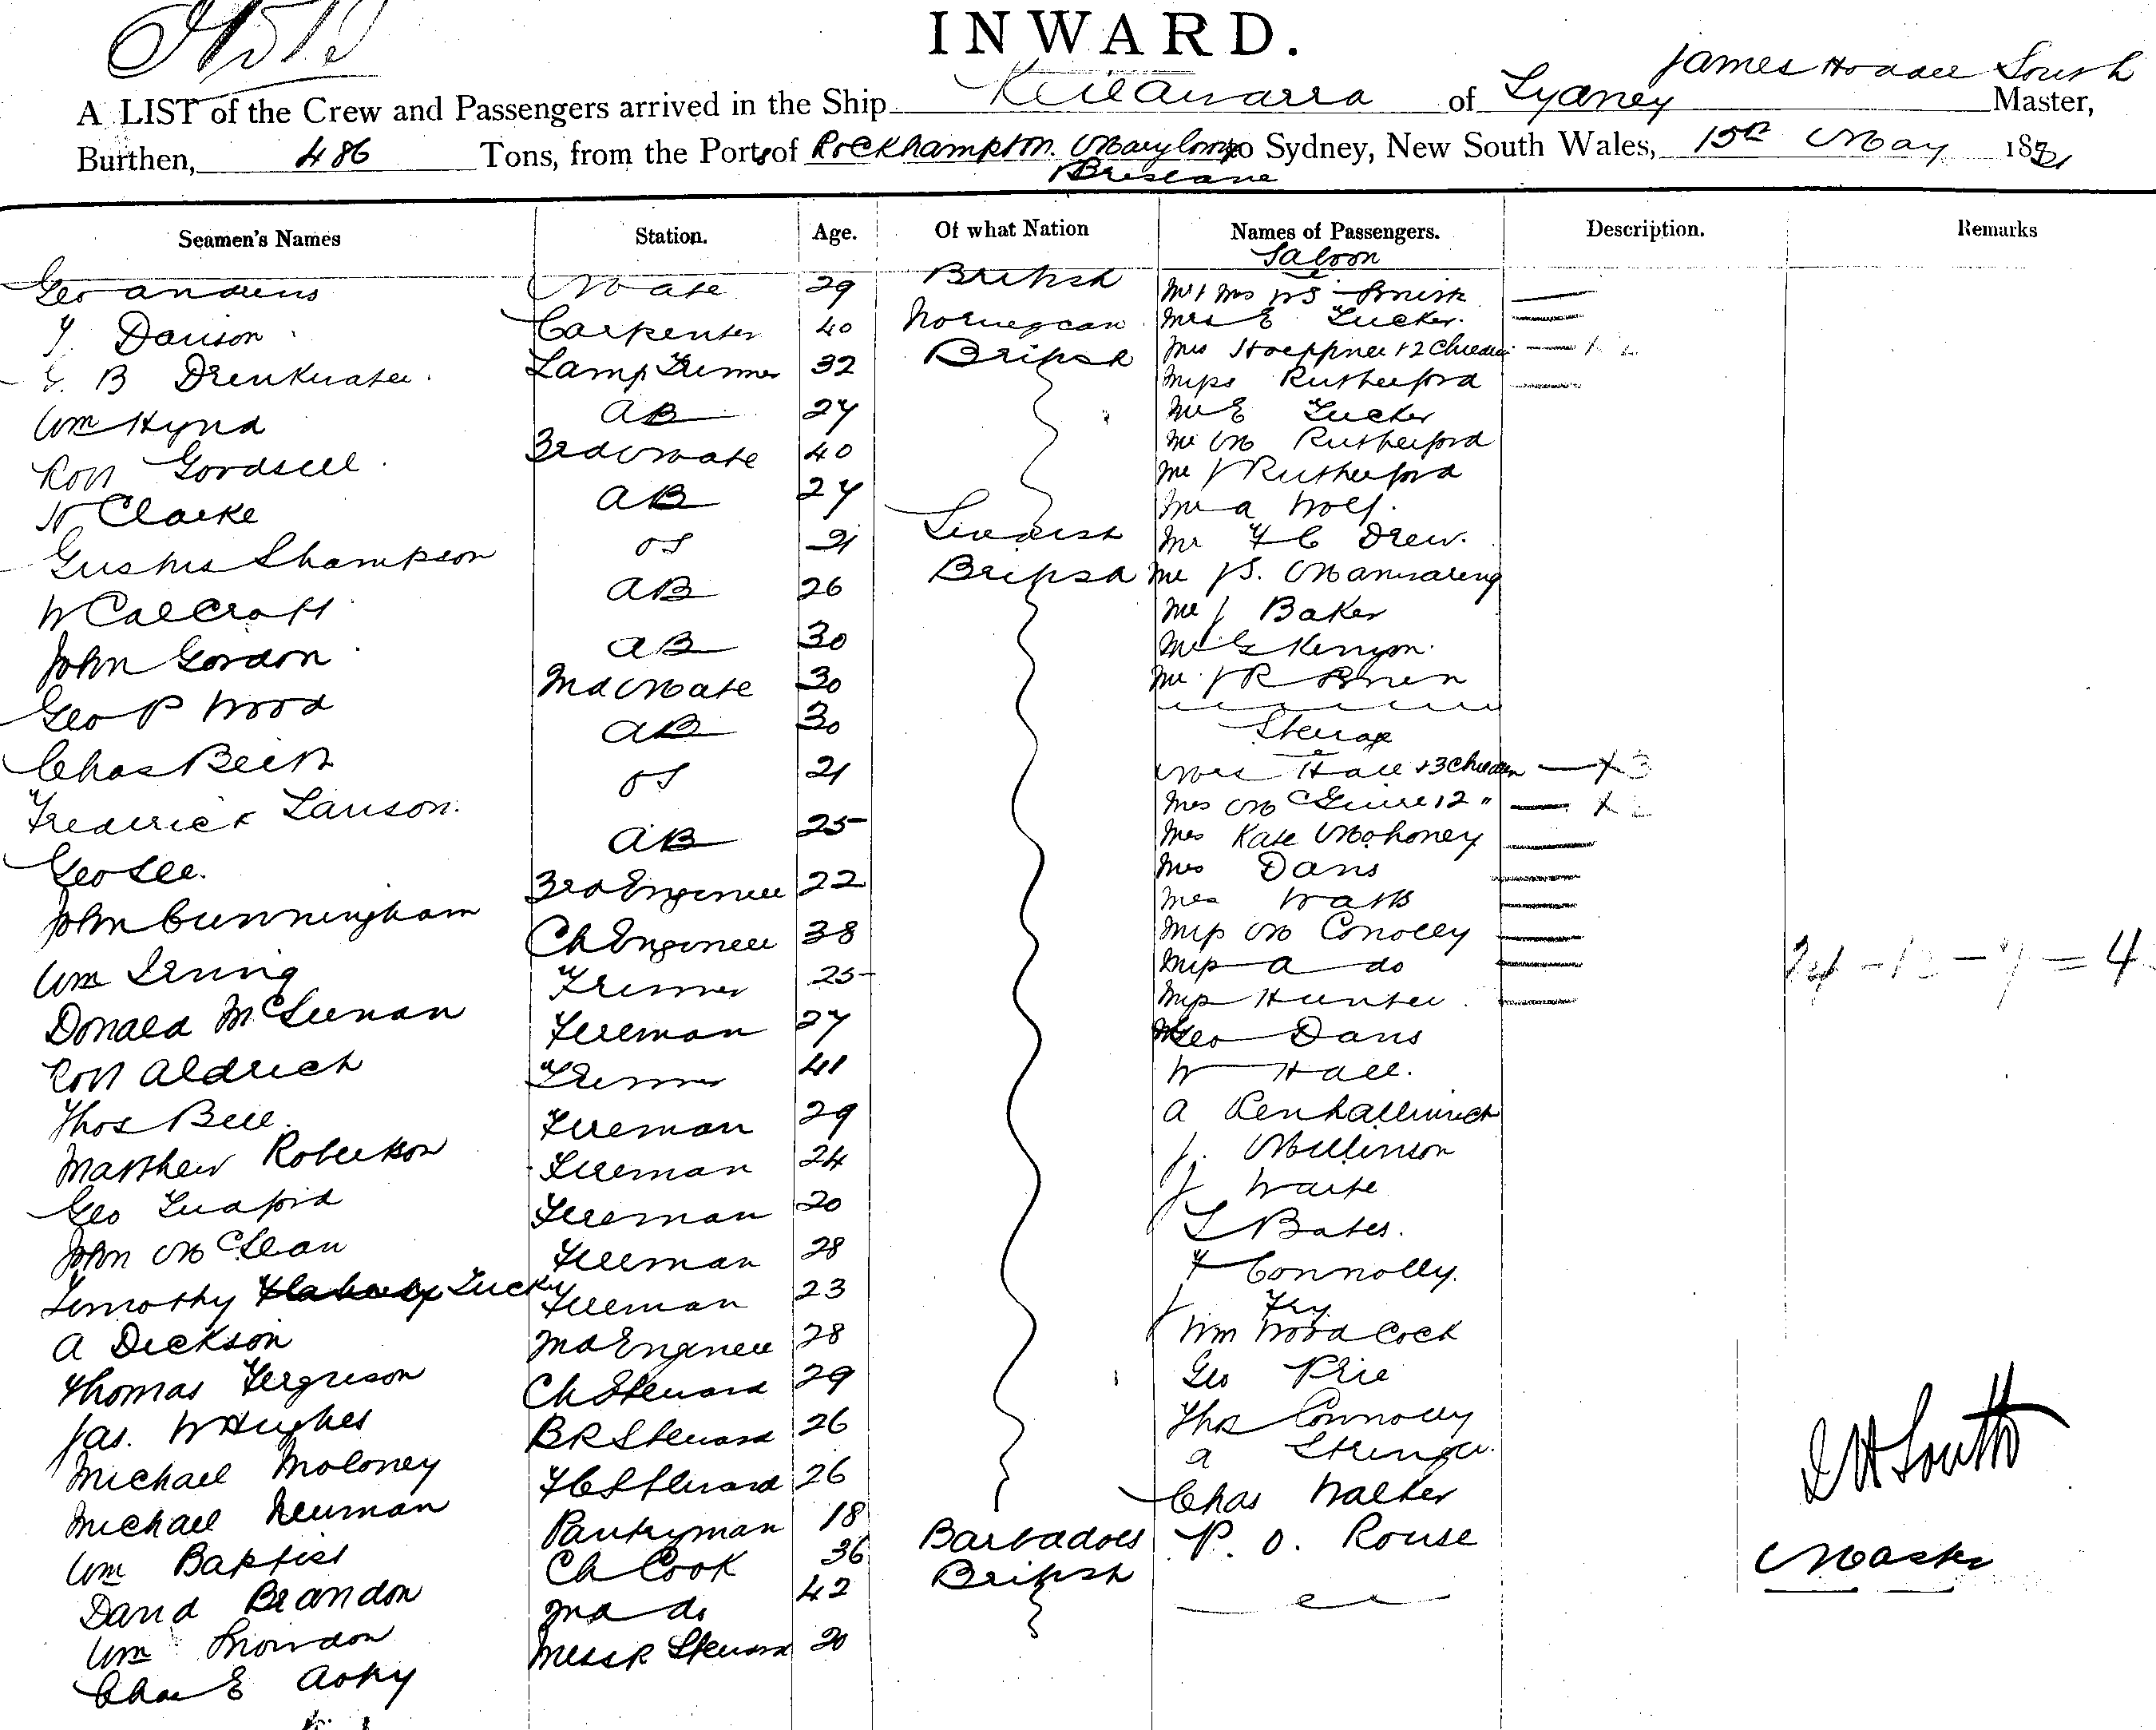 INWARD.
James Hodder South
A LIST of the Crew and Passengers arrived in the Ship Keilawarra of Sydney Master,
Burthen, 486 Tons, from the Ports of Rockhampton Maryboro to Sydney, New South Wales, 15th May 18
Brisbane
Seamen's Names Station. Age. Of what Nation Names of Passengers. Description. Remarks
Saloon
Geo Andrews Mate 29 British Mr & Mrs Smith
Davison Carpenter 40 Norwegian Mrs E Tucker.
B Drinkwater Lamp Trimmer 32 British Mrs Hoeppner & 2 Children
Wm Hynd AB 27 Miss Rutherford
Robt Goodsell 3rd Mate 40 Mr E Tucker
H Clarke AB 27 Mr M Rutherford
Mr J Rutherford
Mr A Wolf.
Thampson OS 21 Mr F C Drew.
W Calcroft AB 26 British Mr J S. Manwaring
John Gordon AB 30 Mr J Baker
Geo P Wood 2nd Mate 30 Mr G Kenyon.
Mr J R
Chas Beith AB 30 Steerage
Frederick Lawson. OS 21 Mrs Hall & 3 Children
Geo Lee. AB 25 Mrs McGuire & 2 "
Mrs Kate Mahoney
John Cunningham 3rd Engineer 22 Mrs Davis
Mrs Watts
Wm Irving Ch Engineer 38 Miss M Conolly
Donald McLennan Trimmer 25 Miss A do
Miss Hunter
Robt Aldrich Fireman 27 Geo Davis
Thos Bell. Trimmer 41 W Hall.
Matthew Robertson Fireman 29 A Penhalluriack
Geo Fireman 24 J. Mullinson
J Waite
John McLean Fireman 20 L Bates.
Timothy Tucky Fireman 28 F Connolly.
A Dickson Fireman 23 J Fry
Thomas Ferguson 2nd Engineer 28 Wm Woodcock
Jas. W Hughes Ch Steward 29 Geo Price
Michael Moloney BR Steward 26 Thos Connolly
A Stringer.
Michael Newman F C Steward 26 Chas Walker
Wm Baptist Pantryman 18 Barbadoes P. O. Rouse
David Brandon Ch Cook 36 British
Wm Snowdon 2nd do 42
Chas E Messr Steward 20
J H South
Master